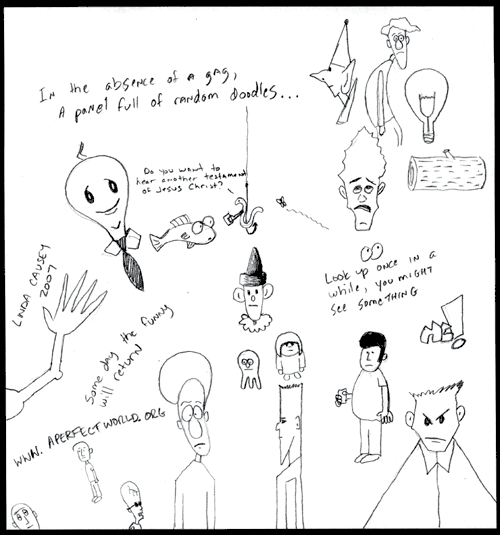 In the absence of a gag,
A panel full of random doodles...
Do you want to
hear another testament
of Jesus Christ?
Look up once in a
while, you might
see something
ME!
LINDA CAUSEY
2007
Some day the funny
will return
WWW.APERFECTWORLD.ORG